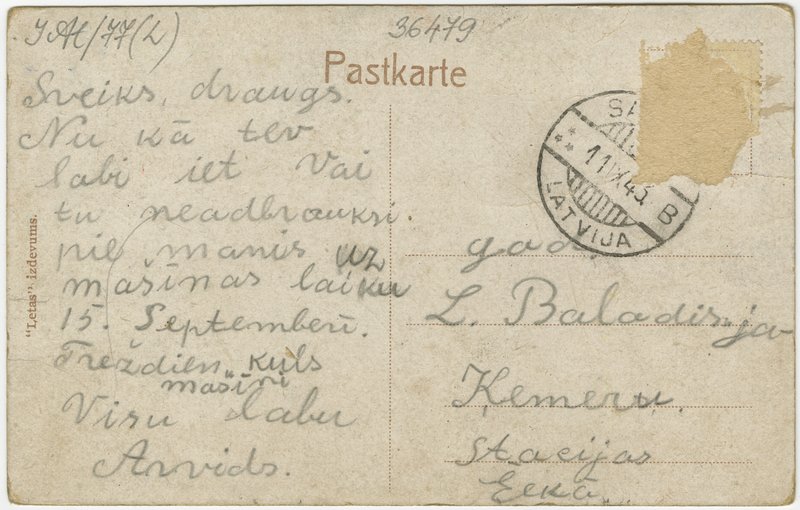 JAH/77(L)
36479
Pastkarte
Sveiks, draugs.
Nu kā tev
labi iet Vai
tu neadbrauksi
pie manis uz
mašīnas laiku
15. Septemberī.
Treždien kuls
mašīni
Visu labu
Arvids.
"Letas" izdevums.
SA
11 IX 43
B
LATVIJA
god.
L. Baladinja
Ķemeru.
Stacijas
Ēekā